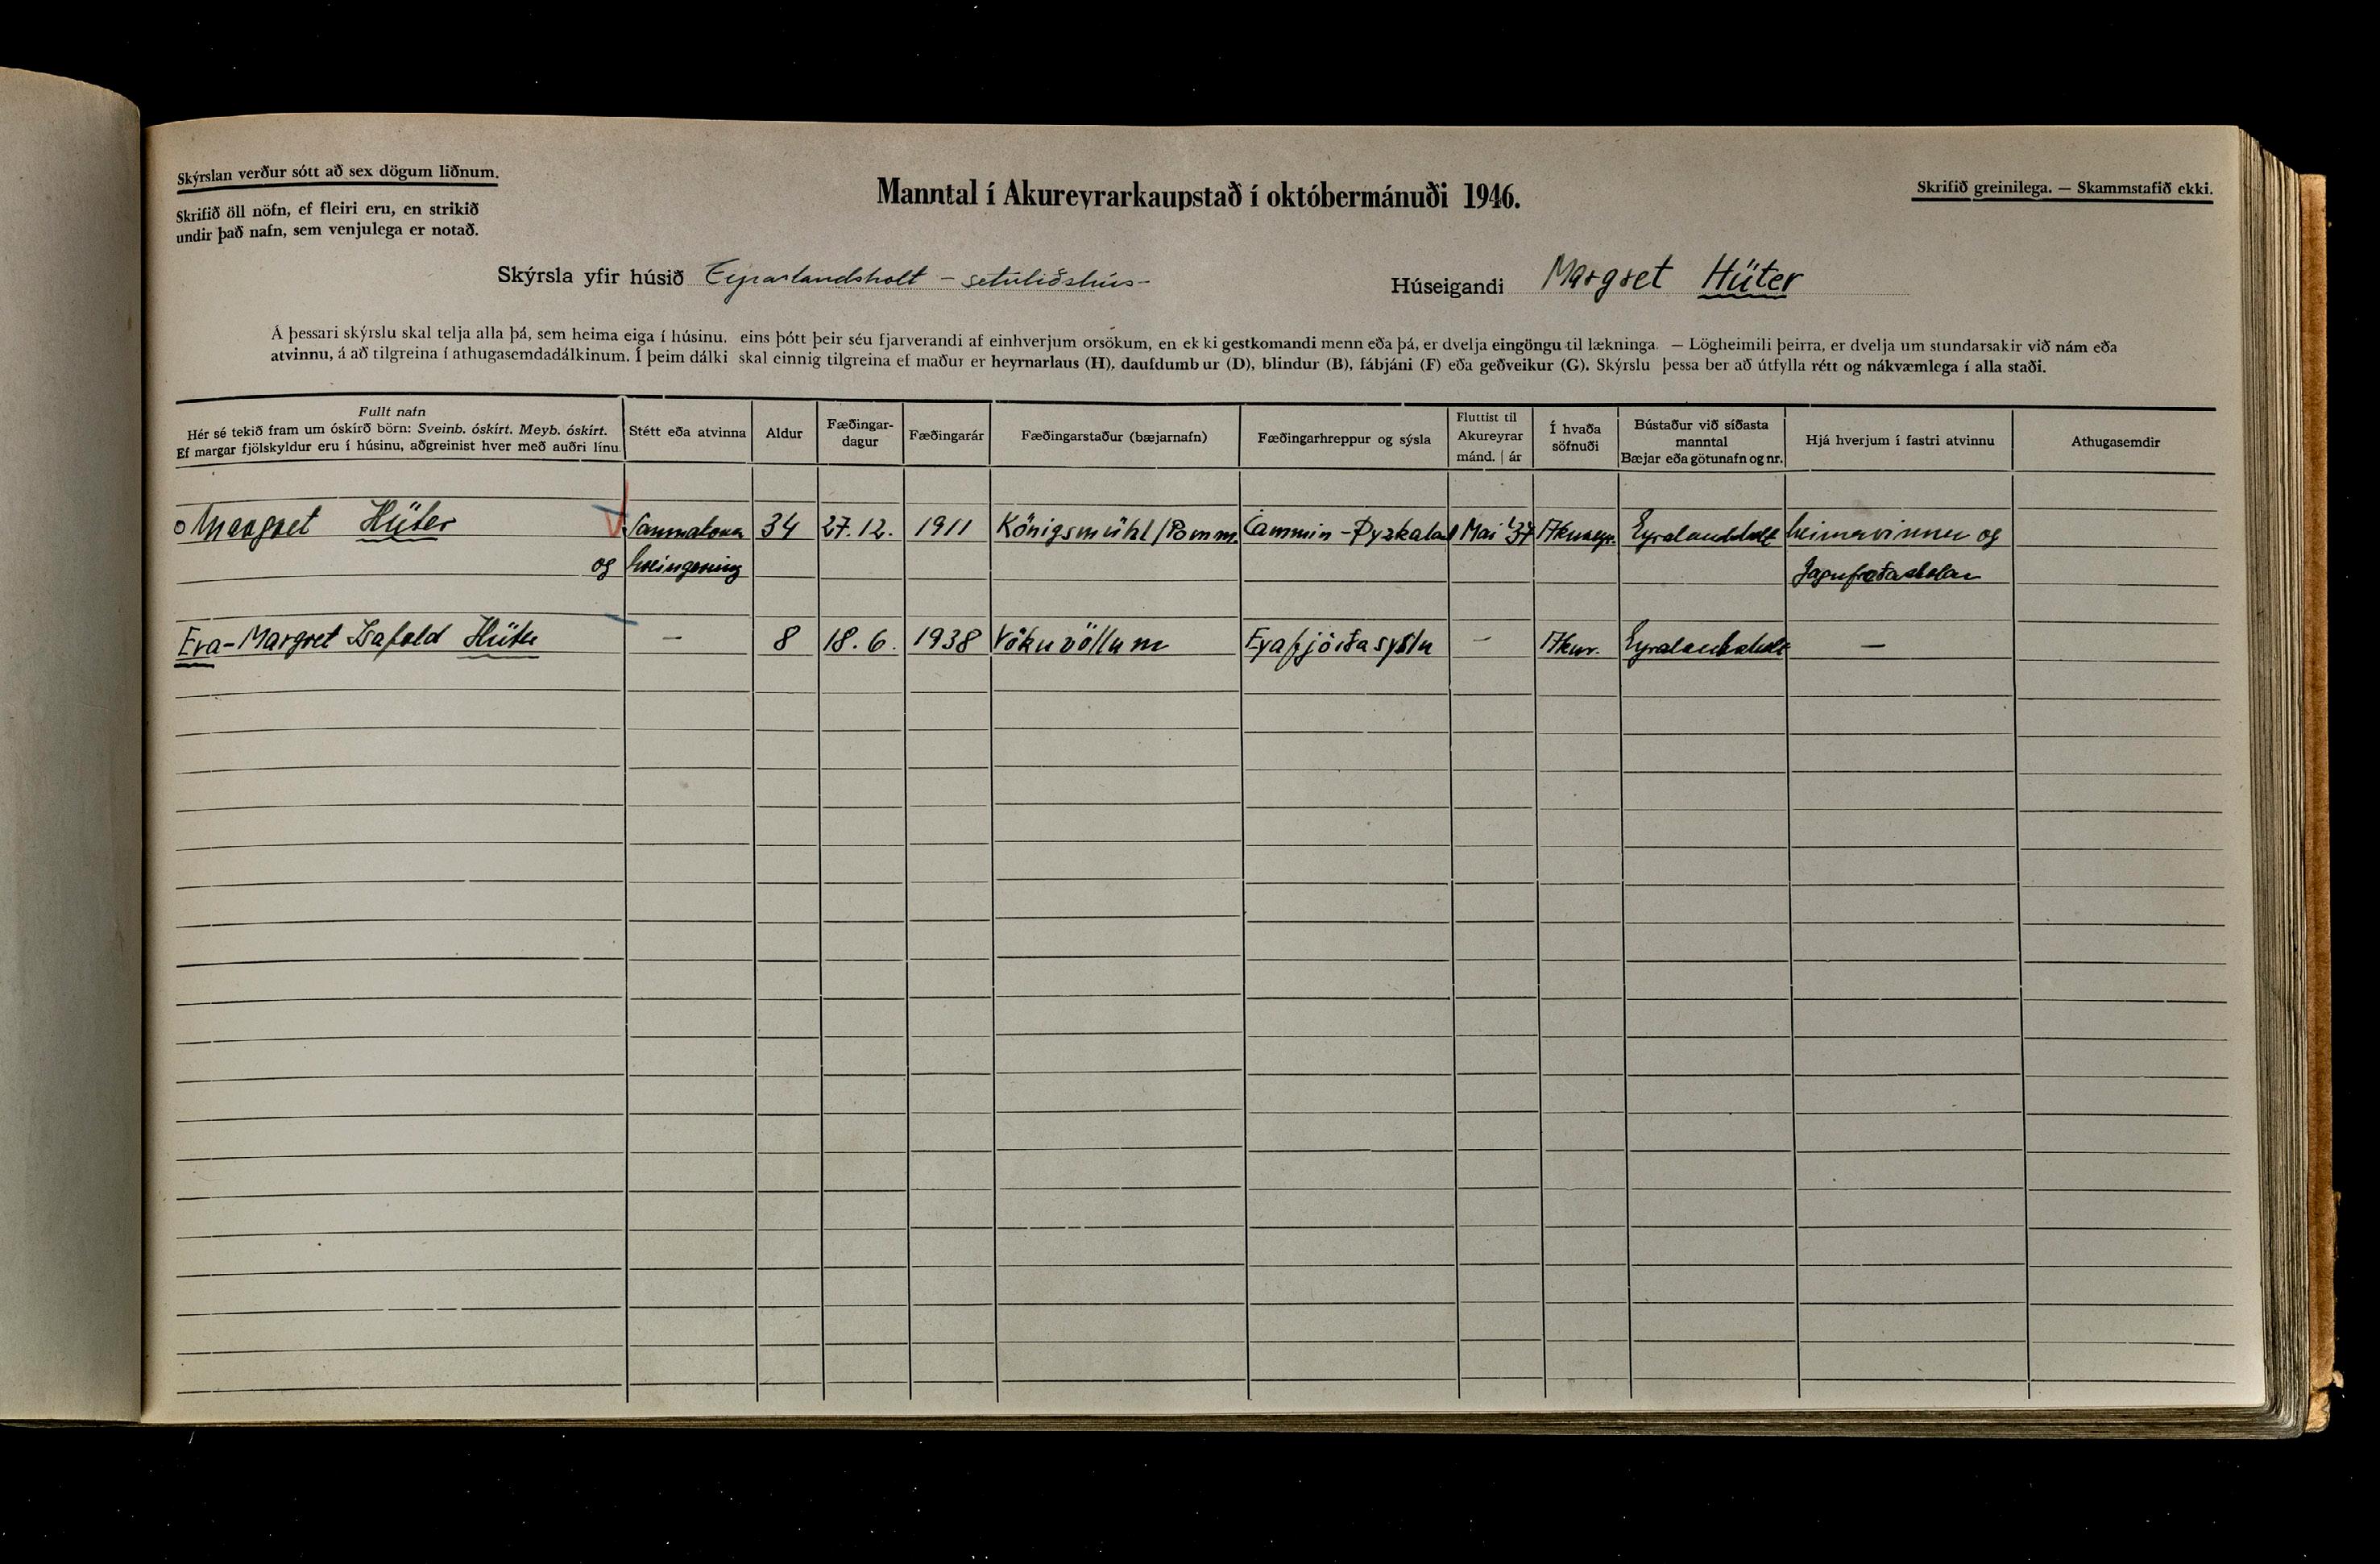 Skýrslan verður sótt að sex dögum liðnum.
Skrifið öll nöfn, ef fleiri eru, en strikið
undir það nafn, sem venjulega er notað.
Manntal í Akureyrarkaupstað í októbermánuði 1946.
Skrifið greinilega. — Skammstafið ekki.
Skýrsla yfir húsið Eyrarlandsholt - setuliðshús-
Húseigandi Margret Hüter
Á þessari skýrslu skal telja alla þá, sem heima eiga í húsinu, eins þótt þeir séu fjarverandi af einhverjum orsökum, en ekki gestkomandi menn eða þá, er dvelja eingöngu til lækninga. — Lögheimili þeirra, er dvelja um stundarsakir við nám eða
atvinnu, á að tilgreina í athugasemdadálkinum. Í þeim dálki skal einnig tilgreina ef maður er heyrnarlaus (H), daufdumbur (D), blindur (B), fábjáni (F) eða geðveikur (G). Skýrslu þessa ber að útfylla rétt og nákvæmlega í alla staði.
Fullt nafn
Hér sé tekið fram um óskírð börn: Sveinb. óskírt. Meyb. óskírt.
Ef margar fjölskyldur eru í húsinu, aðgreinist hver með auðri línu.
Stétt eða atvinna
Aldur
Fæðingar-
dagur
Fæðingarár
Fæðingarstaður (bæjarnafn)
Fæðingarhreppur og sýsla
Fluttist til
Akureyrar
mánd. | ár
Í hvaða
söfnuði
Bústaður við síðasta
manntal
Bæjar eða götunafn og nr.
Hjá hverjum í fastri atvinnu
Athugasemdir
Margret Hüter Saumakona 34 27.12. 1911 Königsmühl/Pomm. Cammin - Þyzkaland Mai '37 Akureyr. Eyralandsholt heimavinna og
og hreingerning Gagnfræðaskolan
Eva-Margret Isafold Hüter — 8 18.6. 1938 Vökuvöllum Eyafjörðasyslu — Akur. Eyralandsholt —